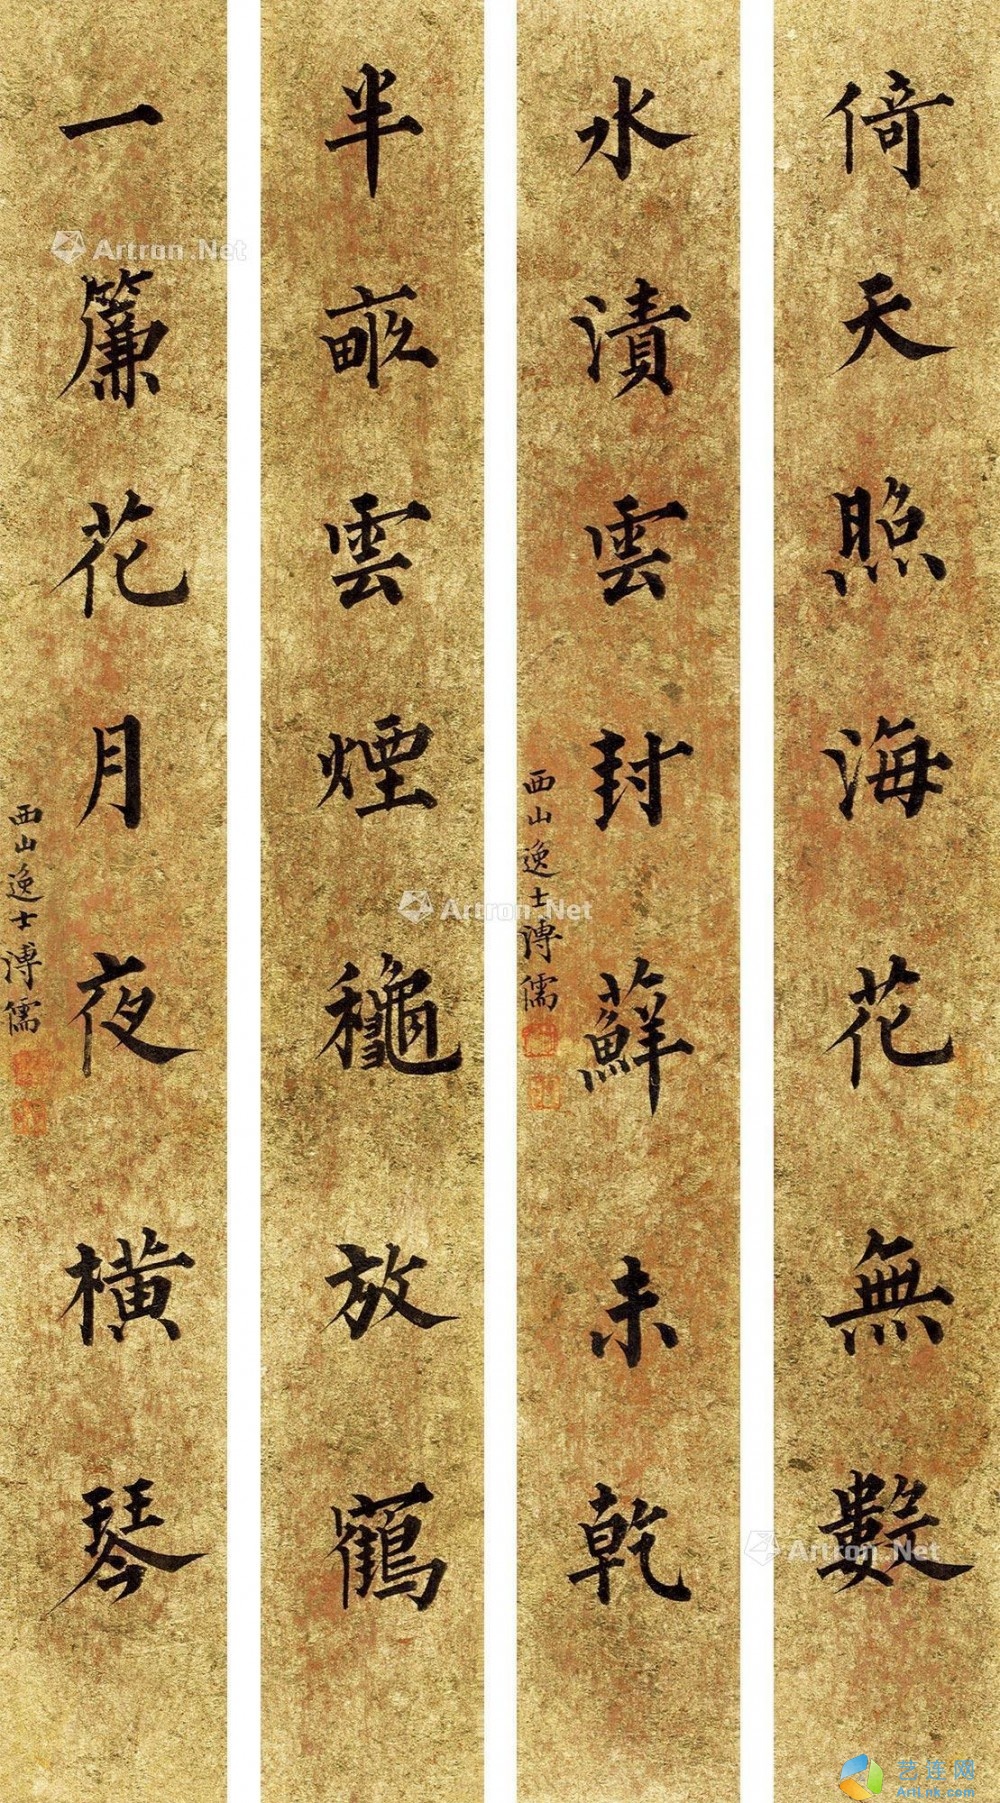 倚天照海花無數
水漬雲封蘚未乾
西山逸士溥儒
半畝雲煙穐放鶴
一簾花月夜橫琴
西山逸士溥儒
Artron.Net
Artron.Net
Artron.Net
艺连网
Artlpk.com